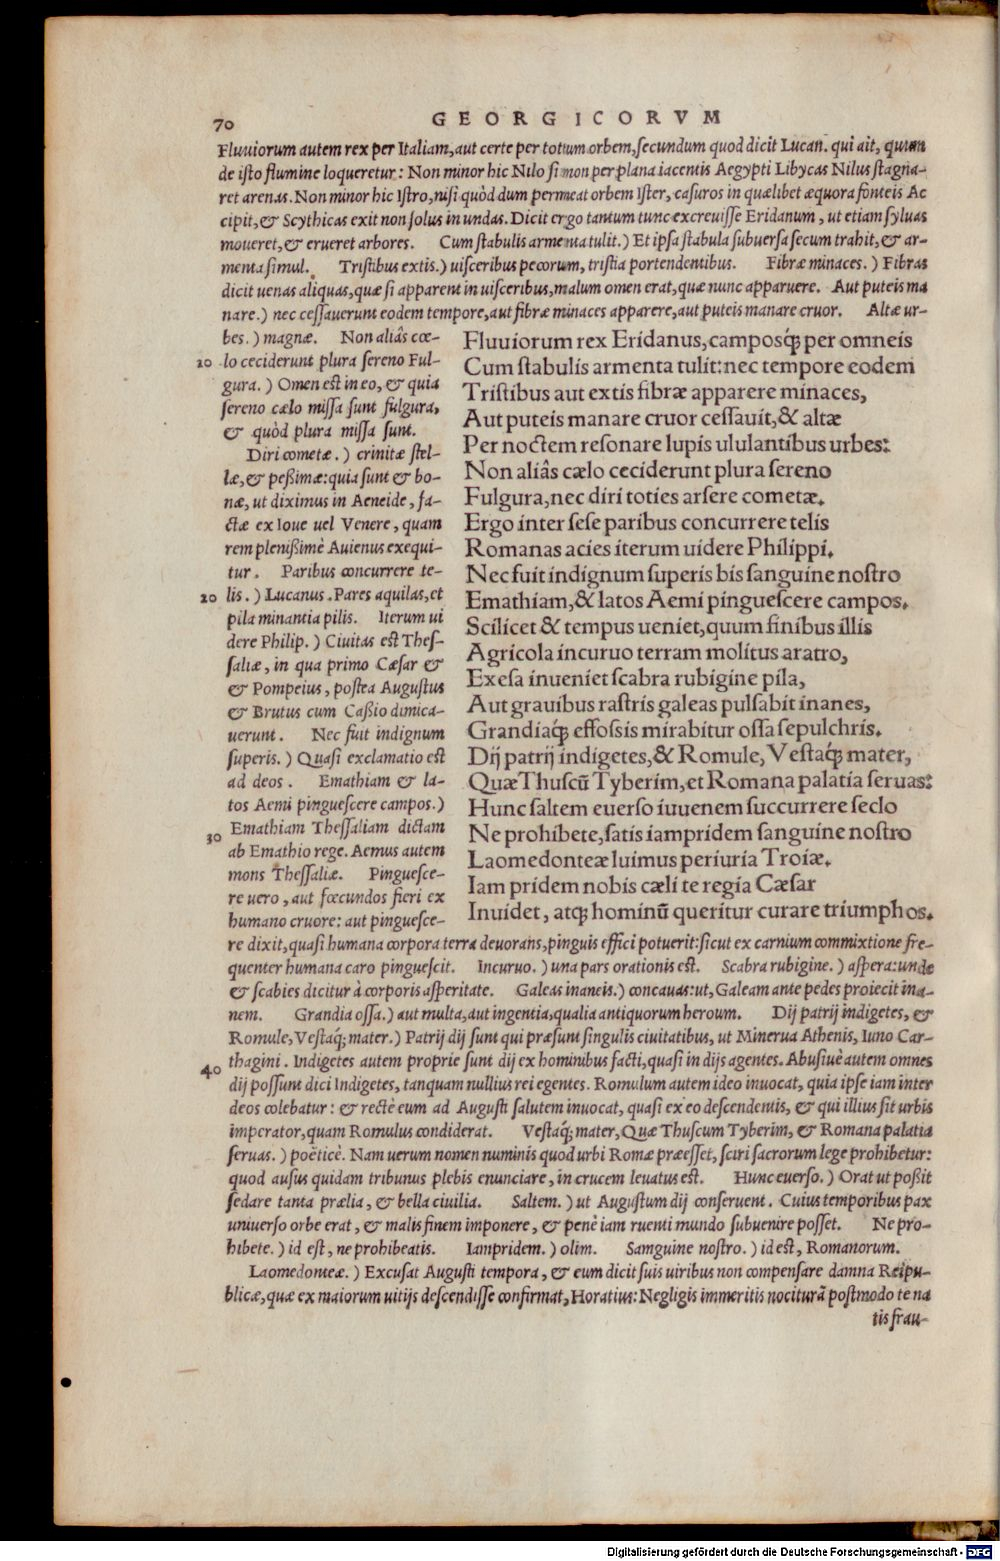 70 GEORGICORVM
Fluuiorum autem rex per Italiam, aut certe per totum orbem, secundum quod dicit Lucan. qui ait, quum
de isto flumine loqueretur: Non minor hic Nilo si non per plana iacentis Aegypti Libycas Nilus stagna-
ret arenas. Non minor hic Istro, nisi quòd dum permeat orbem Ister, casuros in quælibet æquora fonteis Ac
cipit, & Scythicas exit non solus in undas. Dicit ergo tantum tunc excreuisse Eridanum, ut etiam syluas
moueret, & erueret arbores. Cum stabulis armenta tulit.) Et ipsa stabula subuersa secum trahit, & ar-
menta simul. Tristibus extis.) uisceribus pecorum, tristia portendentibus. Fibræ minaces.) Fibras
dicit uenas aliquas, quæ si apparent in uisceribus, malum omen erat, quæ nunc apparuere. Aut puteis ma
nare.) nec cessauerunt eodem tempore, aut fibræ minaces apparere, aut puteis manare cruor. Altæ ur-
bes.) magnæ. Non aliâs cœ-
10 lo ceciderunt plura sereno Ful-
gura.) Omen est in eo, & quia
sereno cælo missa sunt fulgura,
& quòd plura missa sunt.
Diri cometæ.) crinitæ stel-
læ, & peßimæ: quia sunt & bo-
næ, ut diximus in Aeneide, fa-
ctæ ex Ioue uel Venere, quam
rem plenißimè Auienus exequi-
tur. Paribus concurrere te-
20 lis.) Lucanus. Pares aquilas, et
pila minantia pilis. Iterum ui
dere Philip.) Ciuitas est Thes-
saliæ, in qua primo Cæsar &
& Pompeius, postea Augustus
& Brutus cum Caßio dimica-
uerunt. Nec fuit indignum
superis.) Quasi exclamatio est
ad deos. Emathiam & la-
tos Aemi pinguescere campos.)
30 Emathiam Thessaliam dictam
ab Emathio rege. Aemus autem
mons Thessaliæ. Pinguesce-
re uero, aut fœcundos fieri ex
humano cruore: aut pinguesce-
Fluuiorum rex Eridanus, camposq́; per omneis
Cum stabulis armenta tulit: nec tempore eodem
Tristibus aut extis fibræ apparere minaces,
Aut puteis manare cruor cessauit, & altæ
Per noctem resonare lupis ululantibus urbes:
Non aliâs cælo ceciderunt plura sereno
Fulgura, nec diri toties arsere cometæ.
Ergo inter sese paribus concurrere telis
Romanas acies iterum uidere Philippi.
Nec fuit indignum superis bis sanguine nostro
Emathiam, & latos Aemi pinguescere campos.
Scilicet & tempus ueniet, quum finibus illis
Agricola incuruo terram molitus aratro,
Exesa inueniet scabra rubigine pila,
Aut grauibus rastris galeas pulsabit inanes,
Grandiaq́; effossis mirabitur ossa sepulchris.
Dij patrij indigetes, & Romule, Vestaq́; mater,
Quæ Thuscū Tyberim, et Romana palatia seruas:
Hunc saltem euerso iuuenem succurrere seclo
Ne prohibete, satis iampridem sanguine nostro
Laomedonteæ luimus periuria Troiæ.
Iam pridem nobis cæli te regia Cæsar
Inuidet, atq; hominū queritur curare triumphos.
re dixit, quasi humana corpora terra deuorans, pinguis effici potuerit: sicut ex carnium commixtione fre-
quenter humana caro pinguescit. Incuruo.) una pars orationis est. Scabra rubigine.) aspera: unde
& scabies dicitur à corporis asperitate. Galeas inaneis.) concauas: ut, Galeam ante pedes proiecit ina-
nem. Grandia ossa.) aut multa, aut ingentia, qualia antiquorum heroum. Dij patrij indigetes, &
Romule, Vestaq́; mater.) Patrij dij sunt qui præsunt singulis ciuitatibus, ut Minerua Athenis, Iuno Car-
40 thagini. Indigetes autem proprie sunt dij ex hominibus facti, quasi in dijs agentes. Abusiuè autem omnes
dij possunt dici Indigetes, tanquam nullius rei egentes. Romulum autem ideo inuocat, quia ipse iam inter
deos colebatur: & rectè eum ad Augusti salutem inuocat, quasi ex eo descendentis, & qui illius sit urbis
imperator, quam Romulus condiderat. Vestaq́; mater, Quæ Thuscum Tyberim, & Romana palatia
seruas.) poëticè. Nam uerum nomen numinis quod urbi Romæ præesset, sciri sacrorum lege prohibetur:
quod ausus quidam tribunus plebis enunciare, in crucem leuatus est. Hunc euerso.) Orat ut poßit
sedare tanta prælia, & bella ciuilia. Saltem.) ut Augustum dij conseruent. Cuius temporibus pax
uniuerso orbe erat, & malis finem imponere, & penè iam ruenti mundo subuenire posset. Ne pro-
hibete.) id est, ne prohibeatis. Iampridem.) olim. Samguine nostro.) id est, Romanorum.
Laomedonteæ.) Excusat Augusti tempora, & eum dicit suis uiribus non compensare damna Reipu-
blicæ, quæ ex maiorum uitijs descendisse confirmat, Horatius: Negligis immeritis nociturā postmodo te na
tis frau-
Digitalisierung gefördert durch die Deutsche Forschungsgemeinschaft - DFG